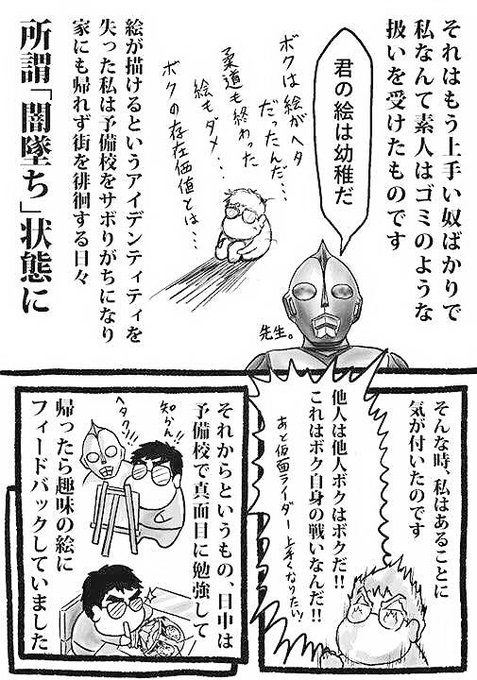 それはもう上手い奴ばかりで
私なんて素人はゴミのような
扱いを受けたものです
君の絵は幼稚だ
先生。
ボクは絵がヘタ
だったんだ…
柔道も終わった
絵もダメ…
ボクの存在価値とは…
絵が描けるというアイデンティティを
失った私は予備校をサボりがちになり
家にも帰れず街を徘徊する日々
所謂「闇墜ち」状態に
そんな時、私はあることに
気が付いたのです
他人は他人ボクはボクだ!!
これはボク自身の戦いなんだ!!
あと仮面ライダー上手くなりたい!!
それからというもの、日中は
予備校で真面目に勉強して
帰ったら趣味の絵に
フィードバックしていました
知らん!!
ヘタク!!